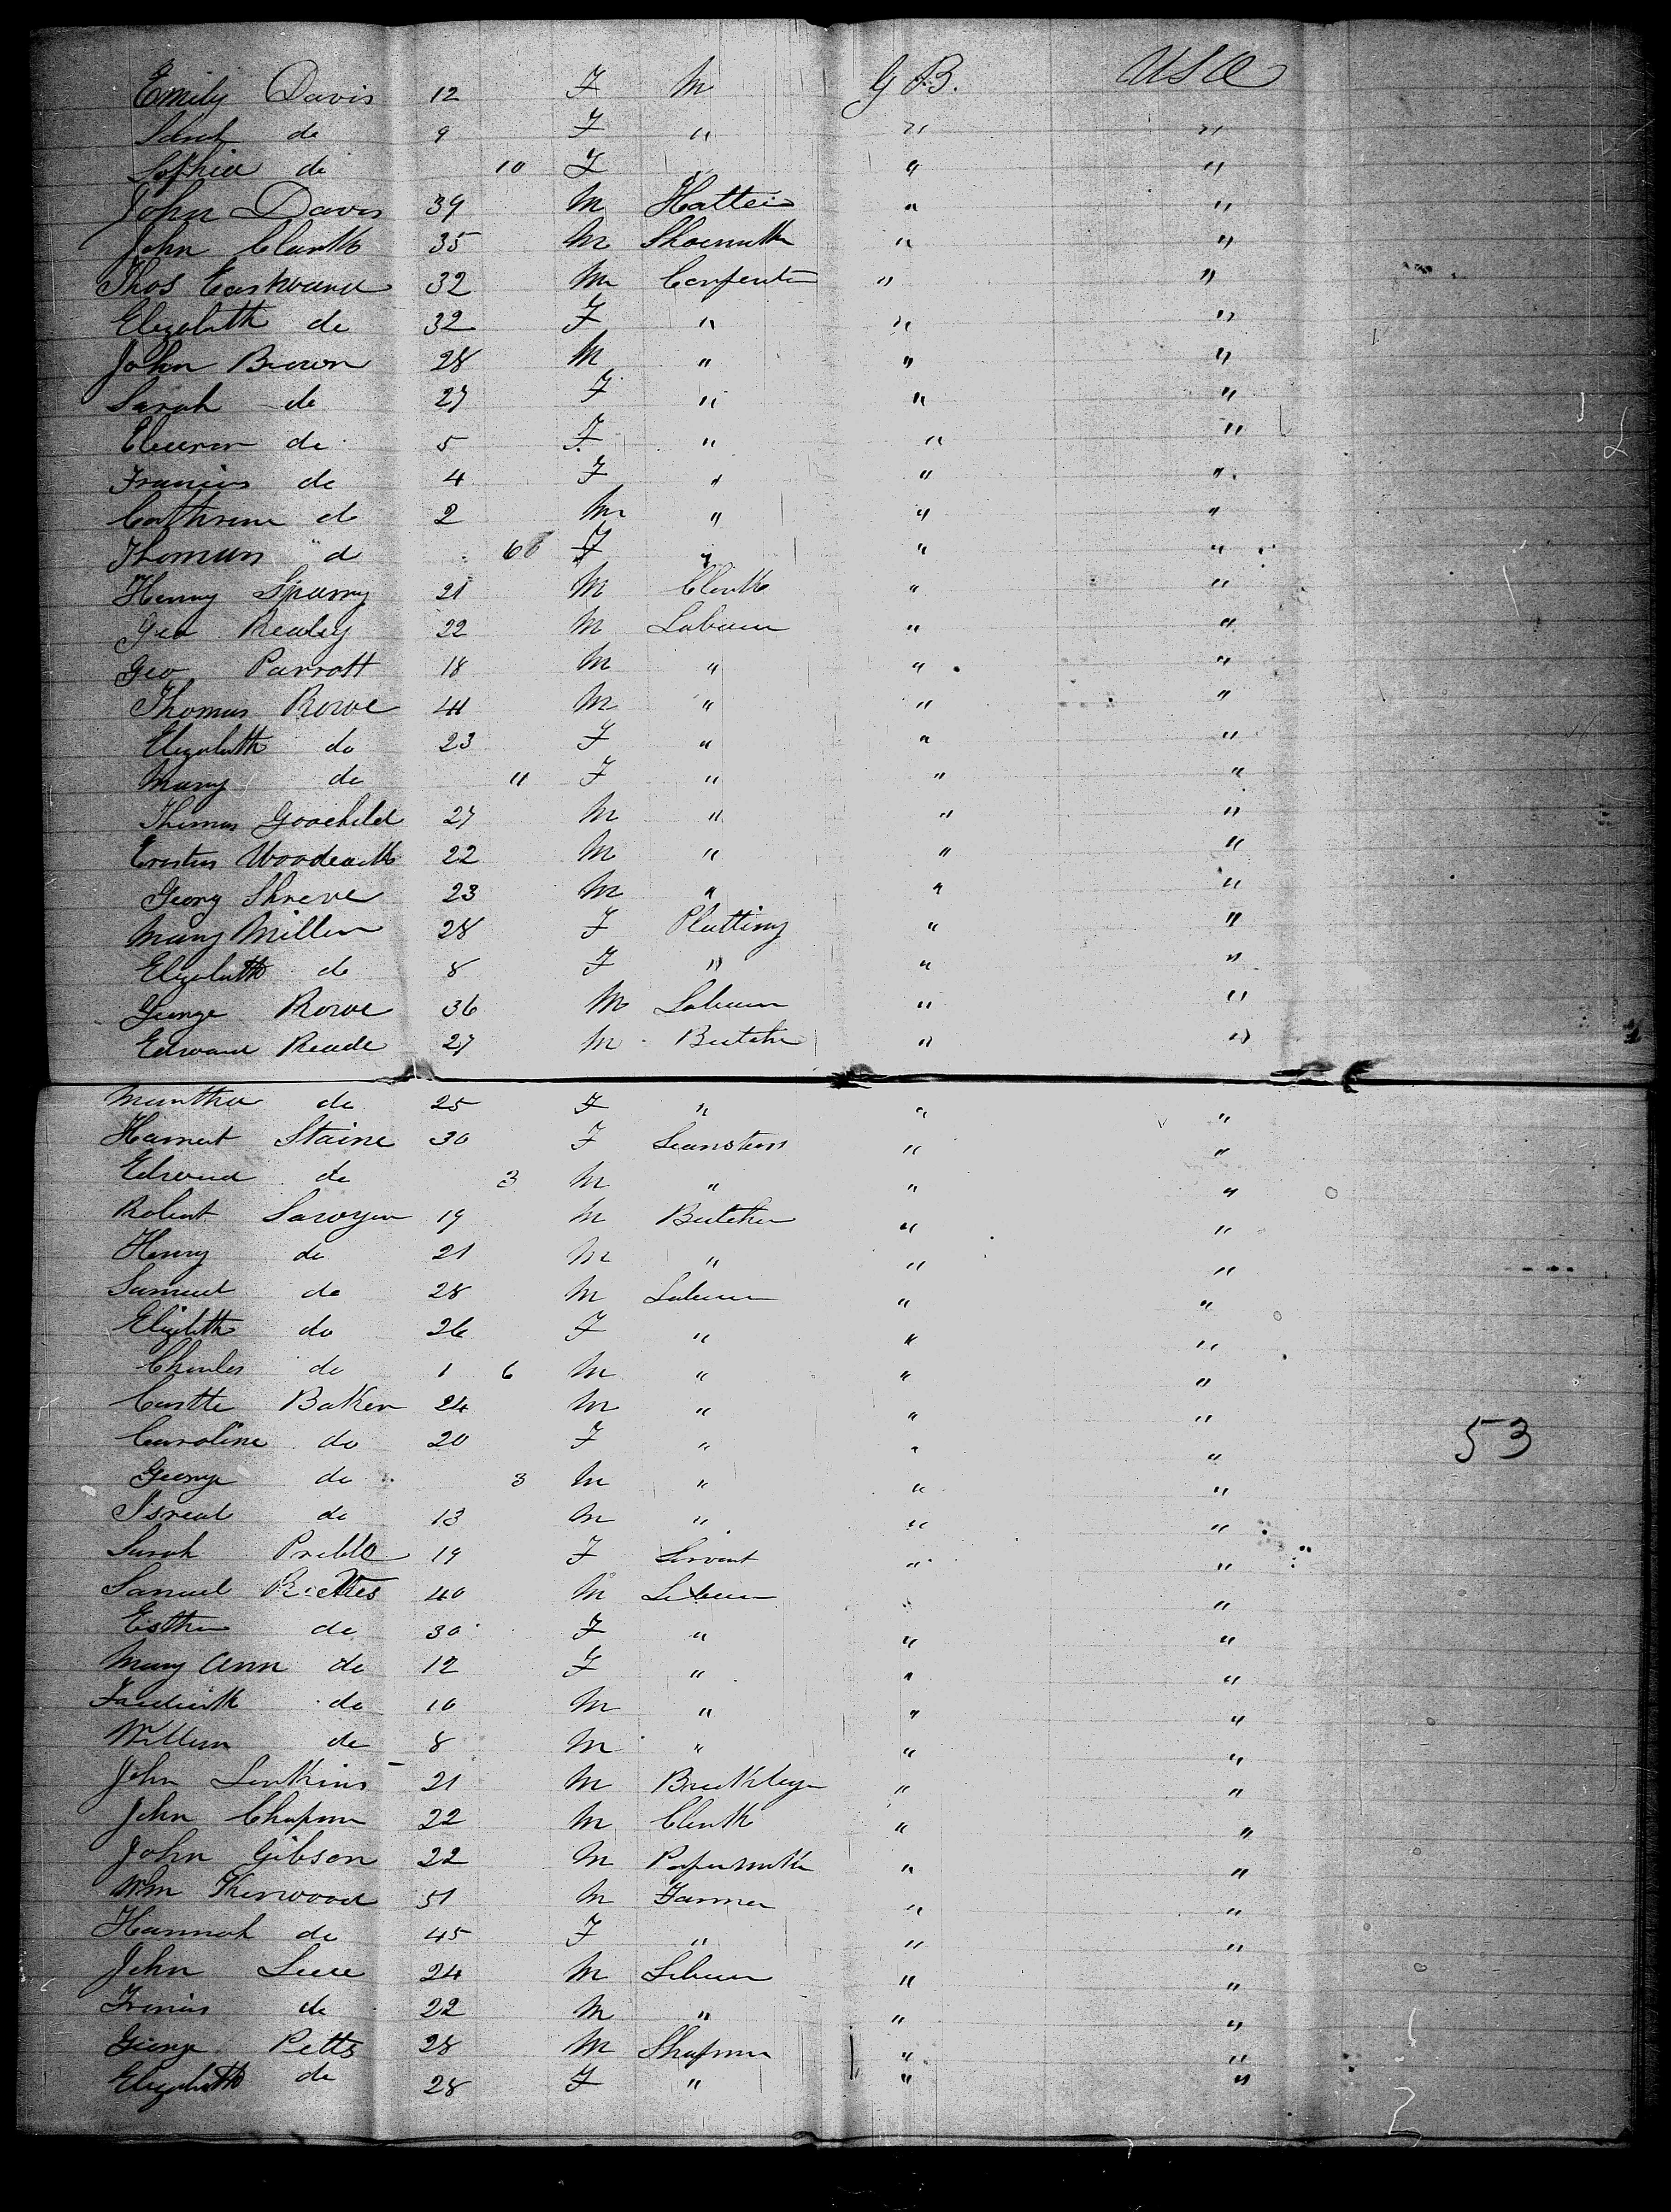 Emily Davis 12 F M G B. USA
Sarah do 9 F " " "
Sophia do 10 F " " "
John Davis 39 M Hatter " "
John Clark 35 M Shoemak " "
Thos Eastwand 32 M Carpenter " "
Elizabeth do 32 F " " "
John Brown 28 M " " "
Sarah do 27 F " " "
Eleanor do 5 F " " "
Francis do 4 F " " "
Cathrine do 2 M " " "
Thomas d 6 F " " "
Henry Sparry 21 M Clerk " "
Geo Realey 22 M Labourer " "
Geo Parrott 18 M " " "
Thomas Rowe 41 M " " "
Elizabeth do 23 F " " "
Mary do 11 F " " "
Thomas Goodchild 27 M " " "
Erastus 22 M " " "
Georg Shreve 23 M " " "
Mary Miller 28 F Platting " "
Elizabeth do 8 F " " "
George Rowe 36 M Labourer " "
Edward Reade 27 M Butcher " "
Martha do 25 F " " "
Harriet Staine 30 F " "
Edward do 3 M " " "
Robert Sawyer 19 M Butcher " "
Henry do 21 M " " "
Samuel do 28 M Labourer " "
Elizabeth do 26 F " " "
Charles do 1 6 M " " "
Castle Baker 24 M " " "
Caroline do 20 F " " "
53
George do 3 M " " "
Isreal do 13 M " " "
Sarah Preble 19 F Servant " "
Samuel Rickes 40 M Labourer " "
Esther do 30 F " " "
Mary Ann do 12 F " " "
Frederick do 10 M " " "
William do 8 M " " "
John Jenkins 21 M Bricklayer " "
John Chapman 22 M Clerk " "
John Gibson 22 M Papermaker " "
Wm Kerwood 51 M Farmer " "
Hannah do 45 F " " "
John Luce 24 M Labourer " "
Francis do 22 M " " "
George Petts 28 M Shopman " "
Elizabeth do 28 F " " "